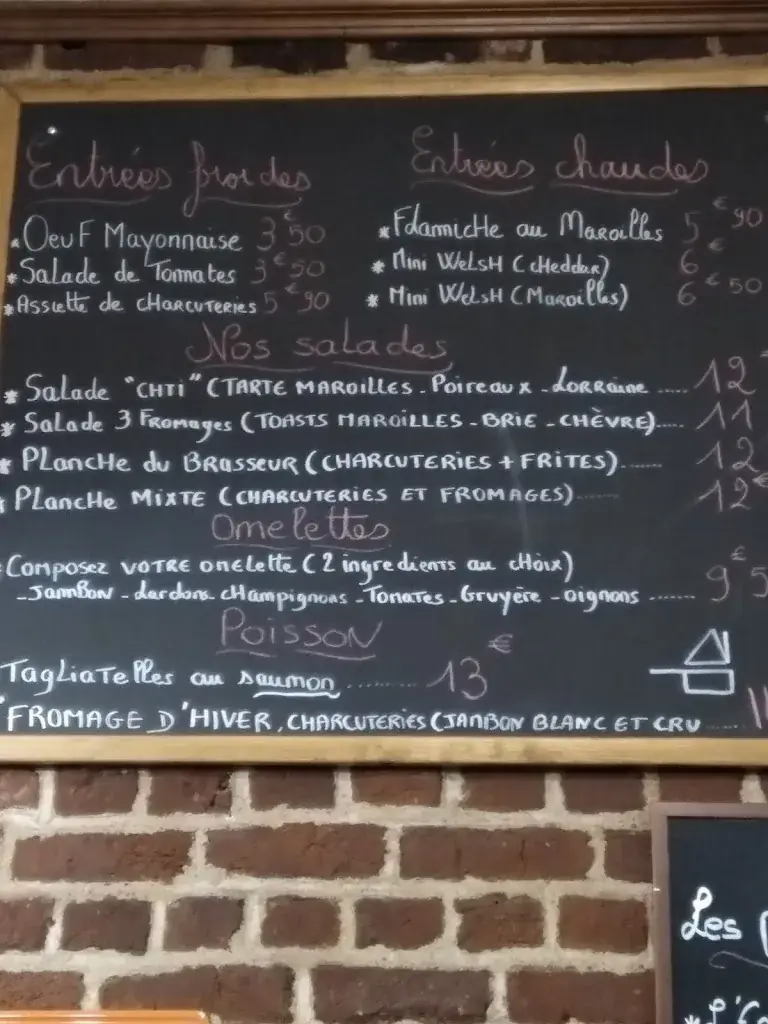 Entrées froides
* Oeuf Mayonnaise 3€50
* Salade de Tomates 3€50
* Assiette de charcuteries 5€90
Entrées chaudes
* Flamiche au Maroilles 5€90
* Mini Welsh (cheddar) 6€
* Mini Welsh (Maroilles) 6€50
Nos salades
* Salade "CHTI" (TARTE MAROILLES - Poireaux - LORRAINE ..... 12
* Salade 3 Fromages (TOASTS MAROILLES - BRIE - CHÈVRE) ..... 11
* Planche du Brasseur (CHARCUTERIES + FRITES) ....... 12
* Planche MIXTE (CHARCUTERIES ET FROMAGES) ....... 12€
Omelettes
Composez VOTRE omelette (2 ingredients au choix)
- Jambon - lardons champignons - Tomates - Gruyère - oignons ....... 9€5
Poisson
Tagliatelles au saumon ......... 13€
FROMAGE D'HIVER, CHARCUTERIES (JAMBON BLANC ET CRU .....
Les